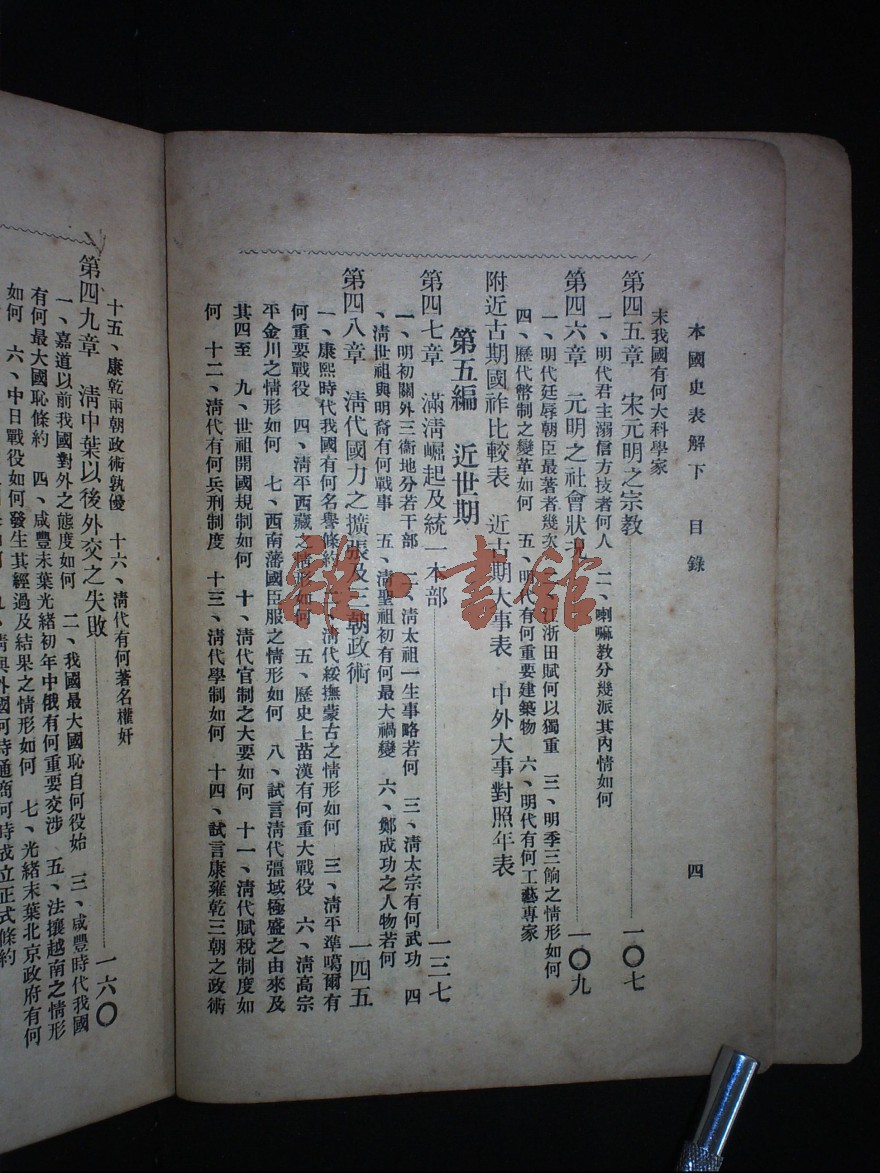 本國史表解下 目錄 四
末我國有何大科學家
第四五章 宋元明之宗教 一〇七
一、明代君主溺信方技者何人 二、喇嘛教分幾派其內情如何
第四六章 元明之社會狀 一〇九
一、明代廷辱朝臣最著者幾次 江浙田賦何以獨重 三、明季三餉之情形如何
四、歷代幣制之變革如何 五、明代有何重要建築物 六、明代有何工藝專家
附近古期國祚比較表 近古期大事表 中外大事對照年表
第五編 近世期
第四七章 滿淸崛起及統一本部 一二七
一、明初關外三衞地分若干部 二、淸太祖一生事略若何 三、淸太宗有何武功 四
、淸世祖與明裔有何戰事 五、淸聖祖初有何最大禍變 六、鄭成功之人物若何
第四八章 淸代國力之擴張及三朝政術 一四五
一、康熙時代我國有何名譽條約 二、淸代綏撫蒙古之情形如何 三、淸平準噶爾有
何重要戰役 四、淸平西藏之情形如何 五、歷史上苗漢有何重大戰役 六、淸高宗
平金川之情形如何 七、西南藩國臣服之情形如何 八、試言淸代彊域極盛之由來及
其四至 九、世祖開國規制如何 十、淸代官制之大要如何 十一、淸代賦稅制度如
何 十二、淸代有何兵刑制度 十三、淸代學制如何 十四、試言康雍乾三朝之政術
十五、康乾兩朝政術孰優 十六、淸代有何著名權奸
第四九章 淸中葉以後外交之失敗 一六〇
一、嘉道以前我國對外之態度如何 二、我國最大國恥自何役始 三、咸豐時代我國
有何最大國恥條約 四、咸豐末葉光緒初年中俄有何重要交涉 五、法攘越南之情形
如何 六、中日戰役如何發生其經過及結果之情形如何 七、光緒末葉北京政府有何
九、淸與外國何時通商何時成立正式條約
雜·書館